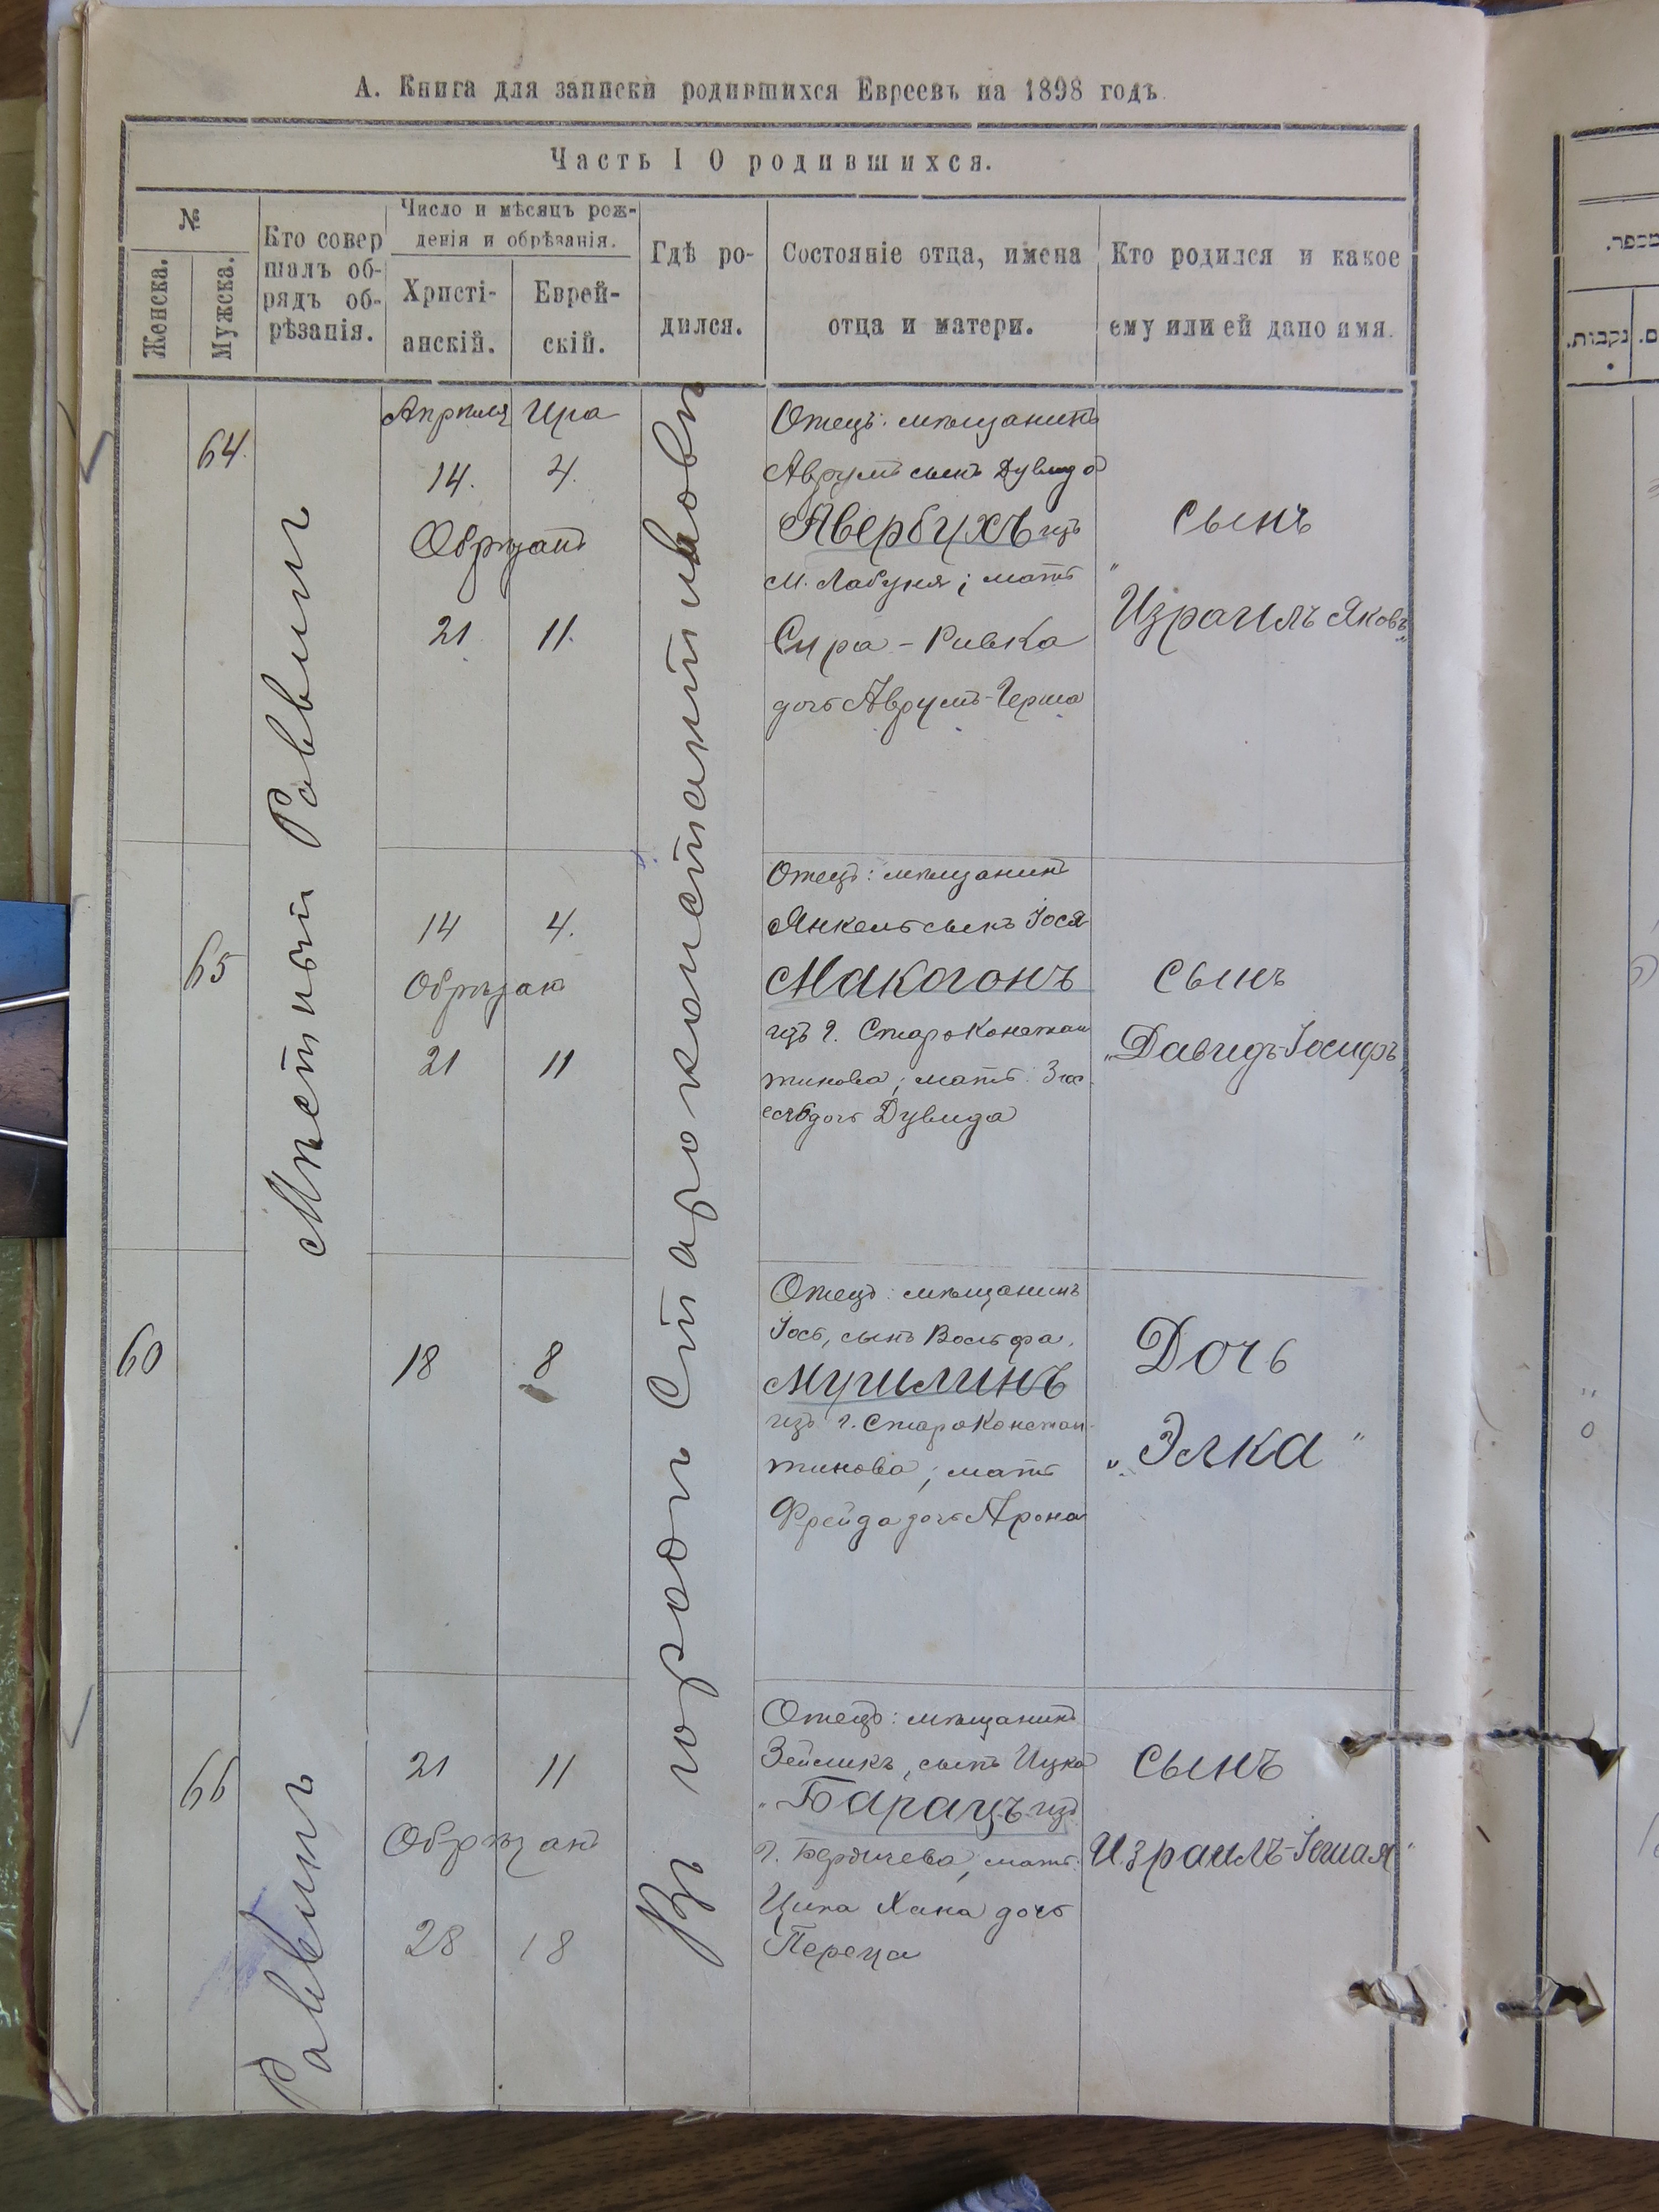 А. Книга для записки родившихся Евреевъ на 1898 годъ.
Часть I О родившихся.
№
Женска.
Мужска.
Кто совер
шалъ об-
рядъ об-
рѣзанія.
Число и мѣсяцъ рож-
денія и обрѣзанія.
Христі-
анскій.
Еврей-
скій.
Гдѣ ро-
дился.
Состояніе отца, имена
отца и матери.
Кто родился и какое
ему или ей дано имя.
Мѣстный Раввинъ
Раввинъ
Въ городѣ Староконстантиновѣ
64.
Апрѣля Ира
14. 4.
Обрѣзанъ
21 11.
Отецъ: мѣщанинъ
Аврумъ сынъ Дувида
Авербухъ изъ
м. Лабуня; мать
Сура-Ривка
дочь Аврумъ-Герша
сынъ
"Израиль Яковъ"
65
14 4.
Обрѣзанъ
21 11
Отецъ: мѣщанинъ
Янкель сынъ Іося
Макогонъ
изъ г. Староконстан
тинова; мать:
дочь Дувида
сынъ
"Давидъ-Іосифъ"
60
18 8
Отецъ: мѣщанинъ
Іось, сынъ Вольфа,
изъ г. Староконстан-
тинова; мать
Фрейда дочь Арона
Дочь
"Элка"
66
21 11
Обрѣзанъ
28 18
Отецъ: мѣщанинъ
Зейликъ, сынъ Ицка
"Барацъ изъ
г. Бердичева, мать:
Ципа Хана дочь
Переца
сынъ
Израиль-Іешая"
מספר.
נקבות.